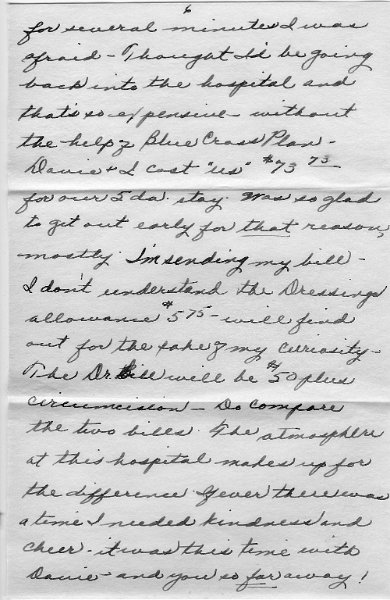 6
for several minutes I was
afraid - Thought I'd be going
back into the hospital and
that's so expensive - without
the help of Blue Cross Plan -
Davie + I cost "us" $73 73 -
for our 5 da. stay. Was so glad
to get out early for that reason,
mostly. I'm sending my bill -
I don't understand the Dressings
allowance $5 75 - will find
out for the sake of my curiosity -
The Dr will be $50 plus
circumcision - Do compare
the two bills. The atmosphere
at this hospital makes up for
the difference. If ever there was
a time I needed kindness and
cheer - it was this time with
Davie - and you so far away!